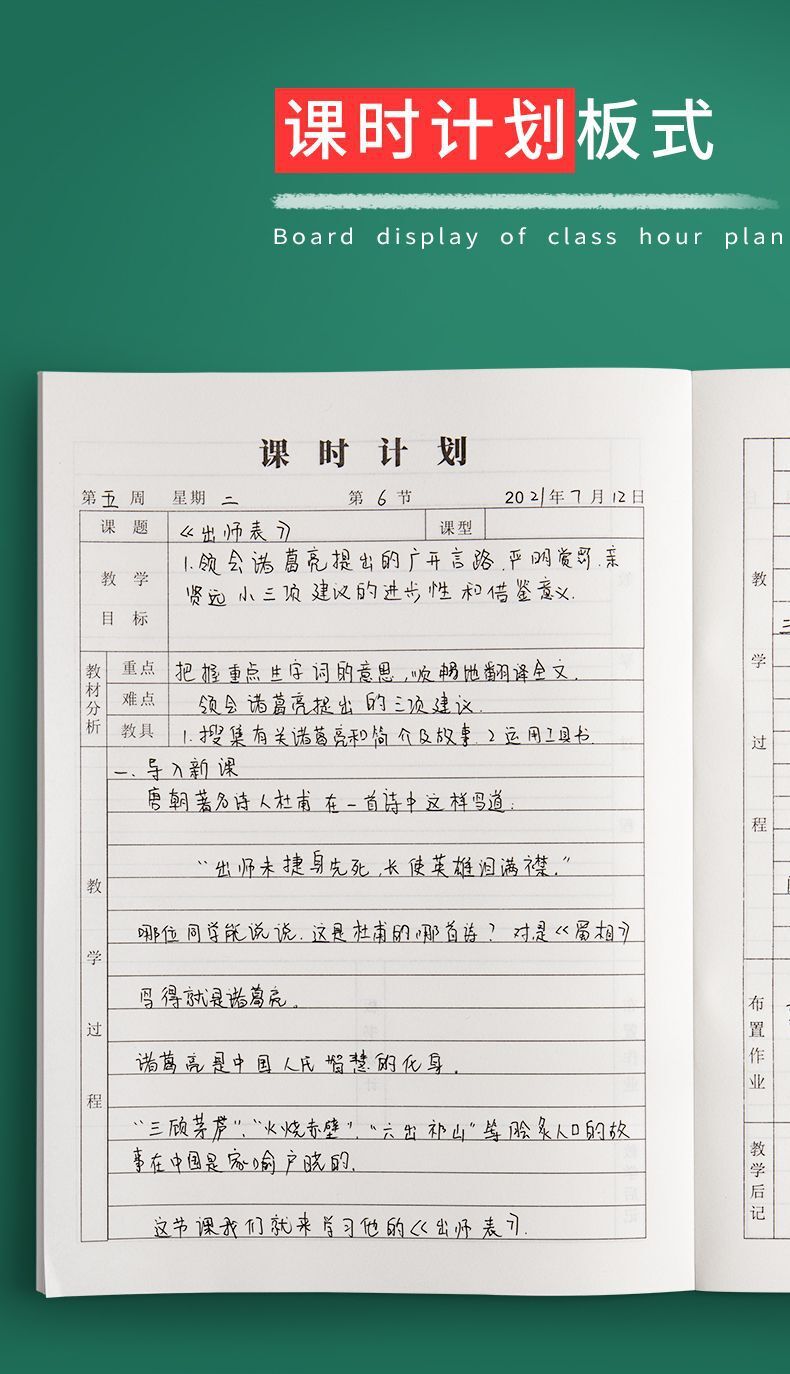 课时计划板式
Board display of class hour plan
课时计划
第五周 星期二 第6节 2021年7月12日
课题 《出师表》 课型
教学目标 1.领会诸葛亮提出的广开言路.严明赏罚.亲
贤远小三项建议的进步性和借鉴意义.
教材分析
重点 把握重点生字词的意思,顺畅地翻译全文.
难点 领会诸葛亮提出的三项建议.
教具 1.搜集有关诸葛亮和简介及故事.2运用工具书.
教学过程
一.导入新课
唐朝著名诗人杜甫在一首诗中这样写道:
“出师未捷身先死,长使英雄泪满襟.”
哪位同学能说说.这是杜甫的哪首诗? 对是《蜀相》
写得就是诸葛亮。
诸葛亮是中国人民智慧的化身.
“三顾茅芦”,“火烧赤壁”,“六出祁山”等脍炙人口的故
事在中国是家喻户晓的.
这节课我们就来学习他的《出师表》.
教学过程
三
布置作业
教学后记